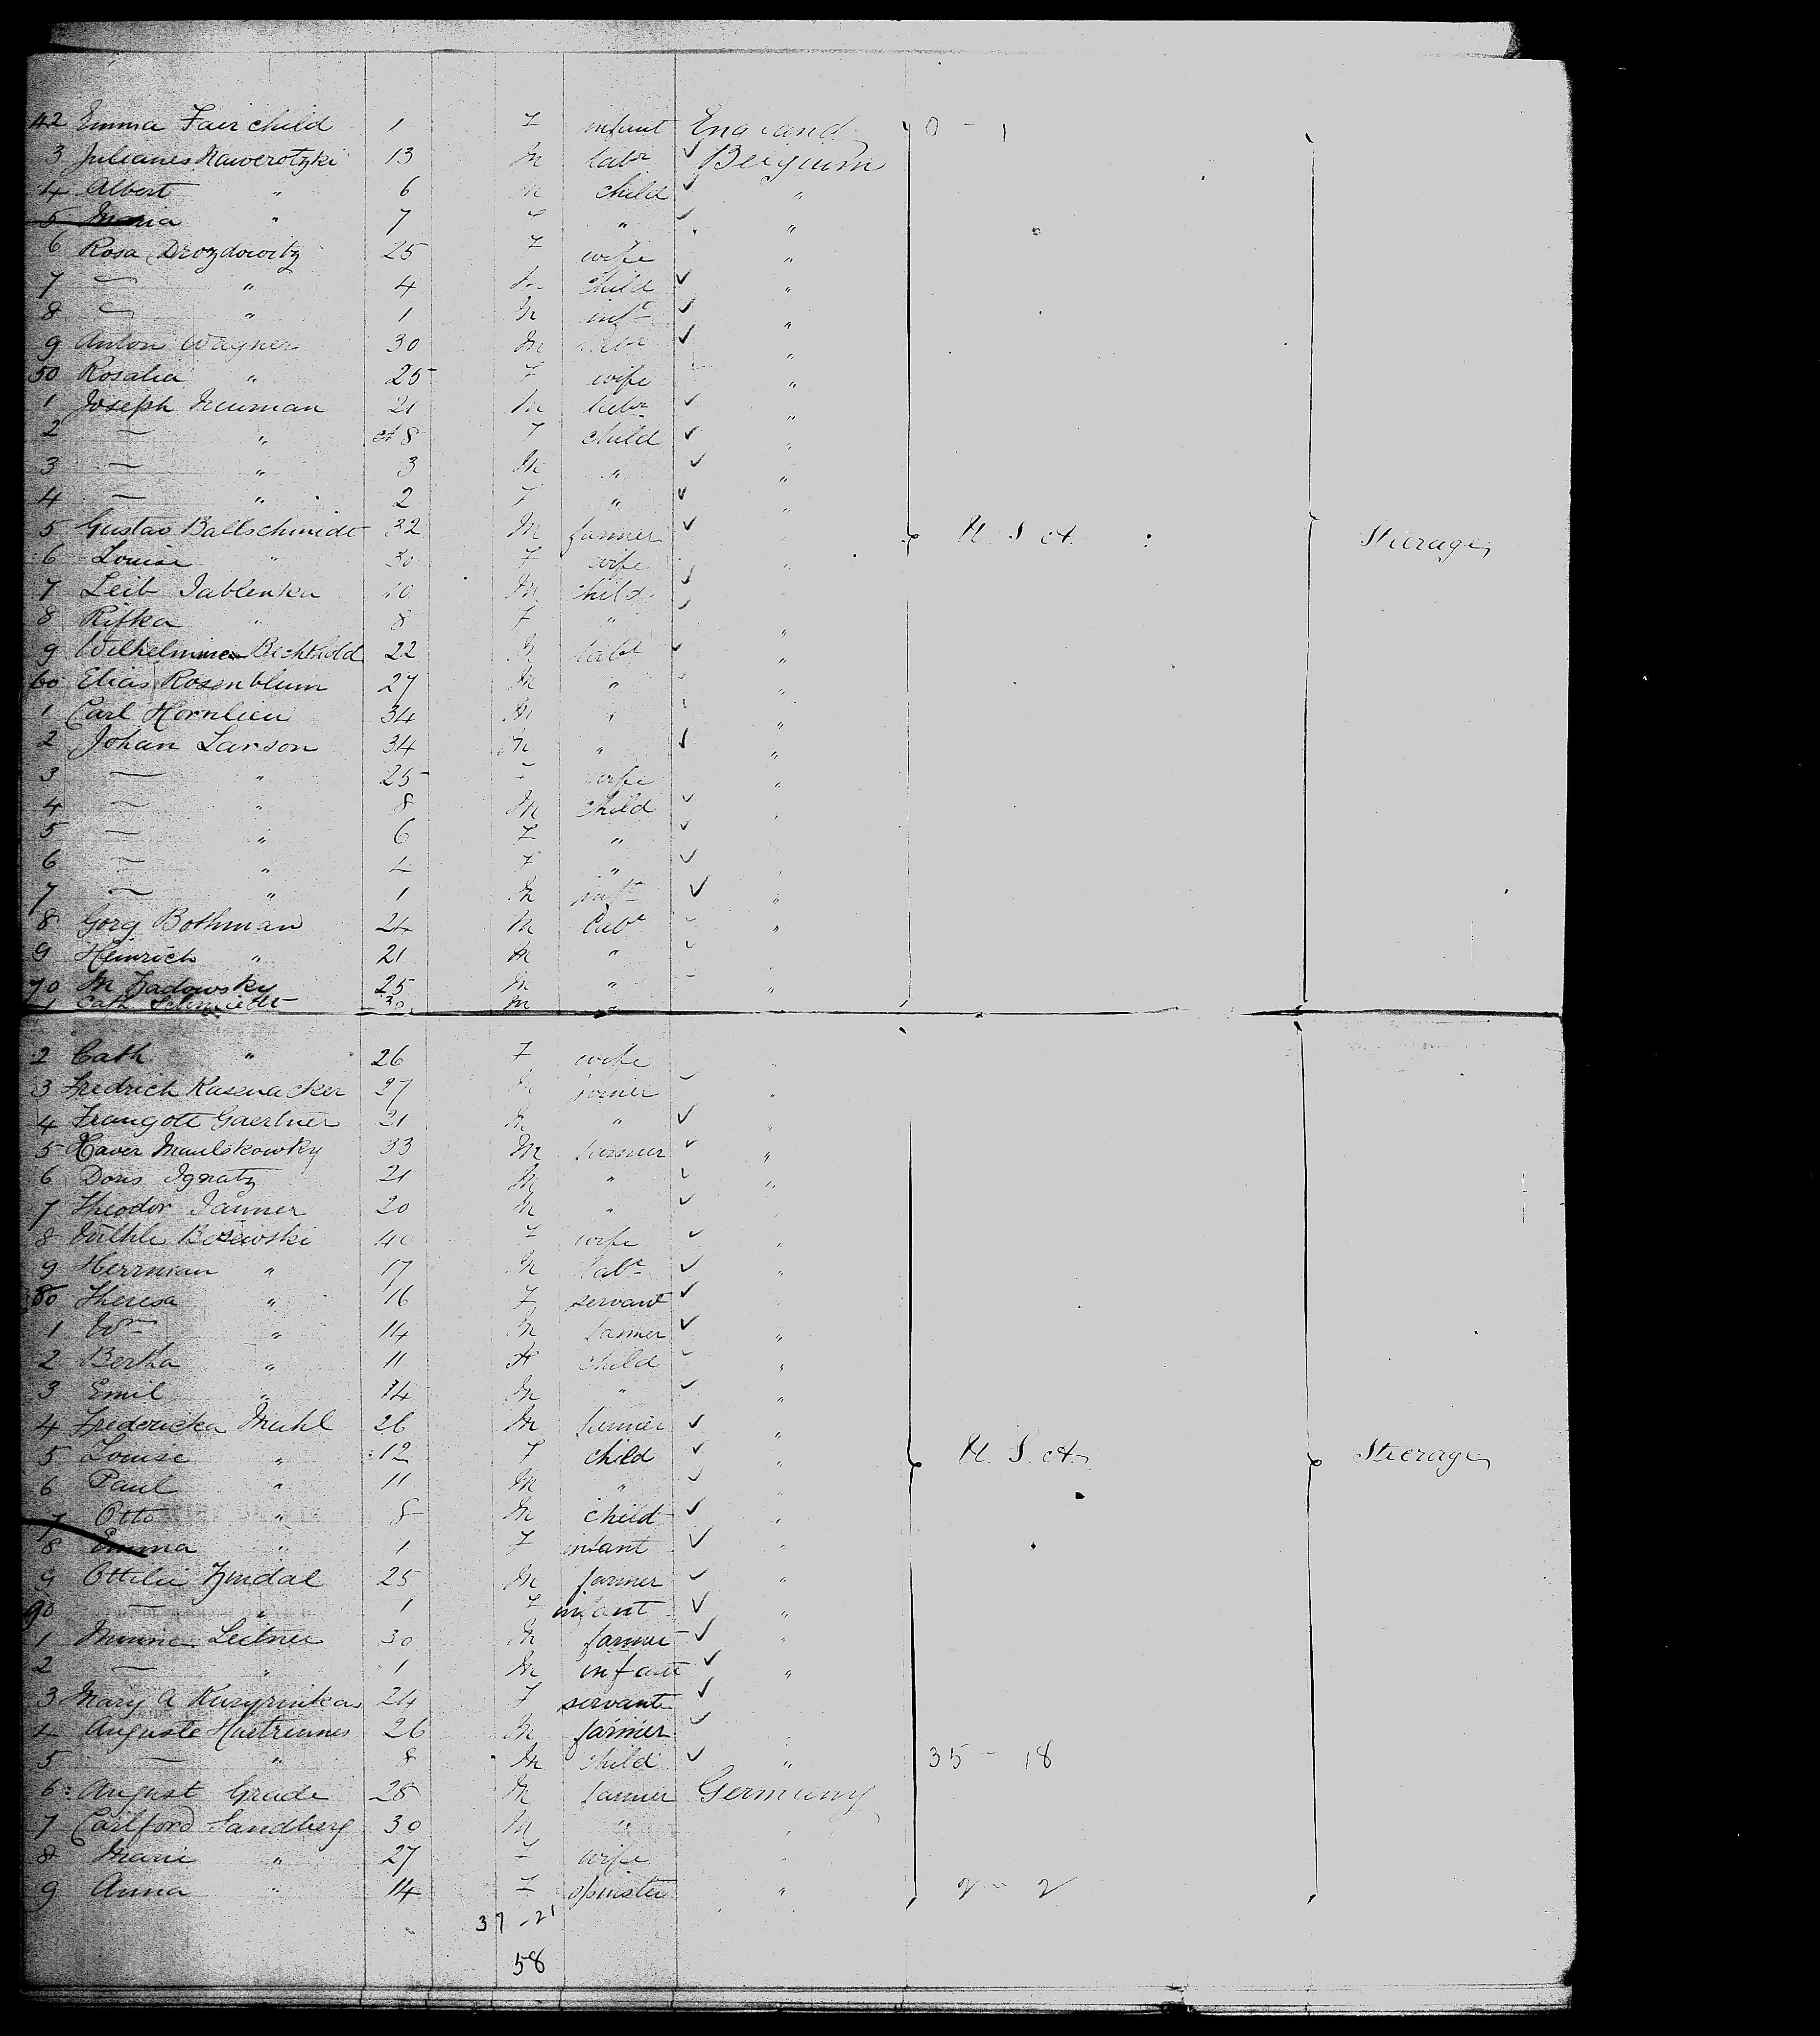 42 Emma Fairchild 1 F infant England 0 - 1
3 Julianes Nawerotzki 13 M labr ✓ Belgium
4 Albert " 6 M child ✓ "
5 Maria " 7 F " ✓ "
6 Rosa Drozdowitz 25 F wife "
7 — " 4 child ✓ "
8 — " 1 M inft ✓ "
9 Anton Wagner 30 M labr ✓ "
50 Rosalia " 25 F wife "
1 Joseph Neuman 21 M labr ✓ "
2 — " 8 F child ✓ "
3 — " 3 M " ✓ "
4 — " 2 F " ✓ "
5 Gustav Ballschmidt 32 M farmer ✓ " U.S.A. Steerage
6 Louise " 30 F wife "
7 Leib Jablenka 10 M child ✓
8 Rifka " 8 F " ✓ "
9 Bichthold 22 M labr ✓ "
60 Elias Rosenblum 27 M " "
1 Carl Hornlien 34 M " "
2 Johan Larson 34 M " ✓ "
3 — " 25 F wife "
4 — " 8 M child ✓ "
5 — " 6 F " ✓
6 — " 4 F " ✓
7 — " 1 M inft ✓ "
8 Gorg Bothman 24 M labr "
9 Heinrich " 21 M "
70 M Zadowsky 25 M " "
1 Cath Schmiedt 30 M "
2 Cath " 26 F wife
3 Fredrich Kasenacker 27 M joiner "
4 Traugott Gaertner 21 M " ✓ "
5 Xaver Maulskowsky 33 M farmer ✓ "
6 Doris Ignatz 21 M " ✓ "
7 Theodor Janner 20 M " ✓ "
8 40 F wife ✓ "
9 Herrman " 17 M labr ✓ "
80 Theresa " 16 F servant ✓ "
1 Wm " 14 M farmer ✓ "
2 Bertha " 11 child "
3 Emil " 14 M " ✓ "
4 Fredericka Muhl 26 M farmer ✓ "
5 Louise " 12 F child ✓ " U.S.A. Steerage
6 Paul " 11 M " ✓ "
7 Otto " 8 M child ✓ "
8 Emma " 1 F infant ✓ "
9 Ottilie Zindal 25 M farmer ✓ "
90 — " 1 F infant ✓ "
1 Minnie Leitner 30 M farmer ✓ "
2 — " 1 M infant ✓ "
3 Mary A 24 F servant ✓
4 Auguste 26 M farmer ✓
5 — " 8 M child ✓ " 35 - 18
6 August Grade 28 M farmer Germany
7 Carlford Sandberg 30 M " "
8 Marie " 27 F wife "
9 Anna " 14 F spinster " 2 - 2
37 - 21
58